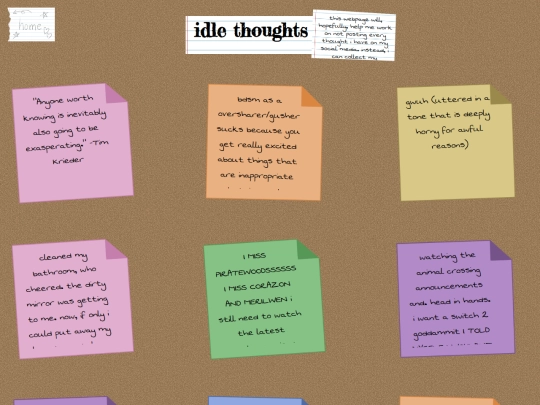 home
idle thoughts
this webpage will
hopefully help me work
on not posting every
thought i have on my
social media. instead i
can collect my
"Anyone worth
knowing is inevitably
also going to be
exasperating." -Tim
Krieder
bdsm as a
oversharer/gusher
sucks because you
get really excited
about things that
are inappropriate
gwuh (uttered in a
tone that is deeply
horny for awful
reasons)
cleaned my
bathroom, who
cheered. the dirty
mirror was getting
to me. now, if only i
could put away my
I MISS
PIRATEWOODSSSSSS
I MISS CORAZON
AND MERILWEN i
still need to watch
the latest
watching the
animal crossing
announcements
and. head in hands.
i want a switch 2
goddammit I TOLD